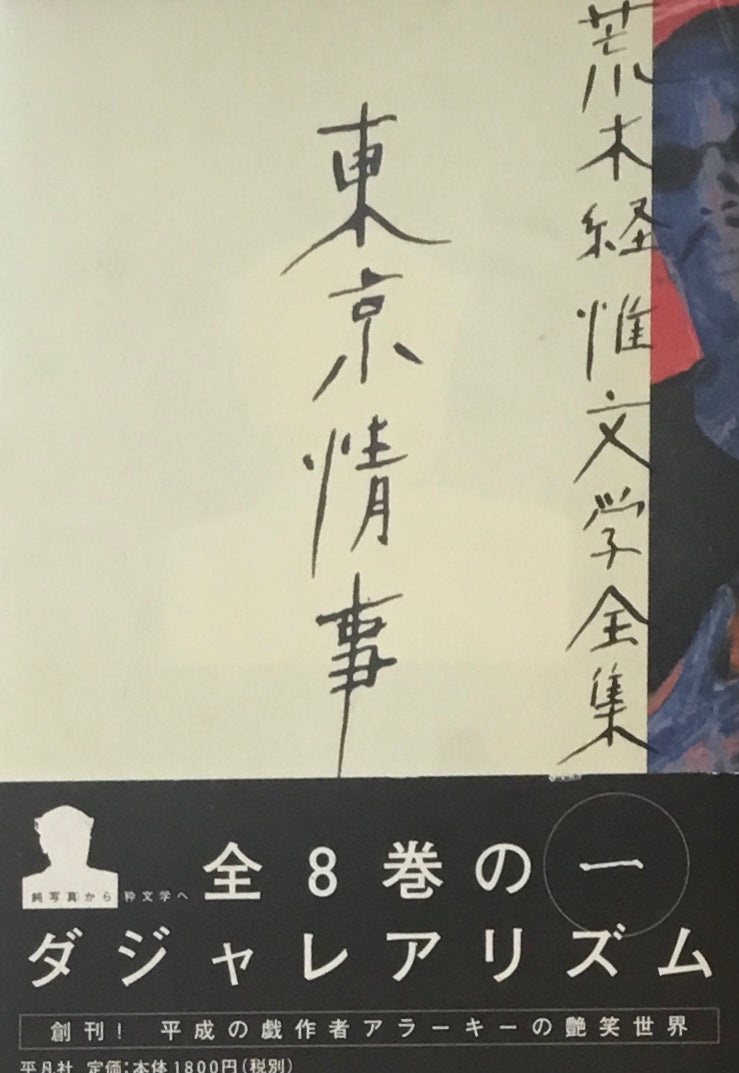 荒木経惟文学全集
東京情事
全8巻の一
純写真から粋文学へ
ダジャレアリズム
創刊! 平成の戯作者アラーキーの艶笑世界
平凡社 定価:本体1800円(税別)